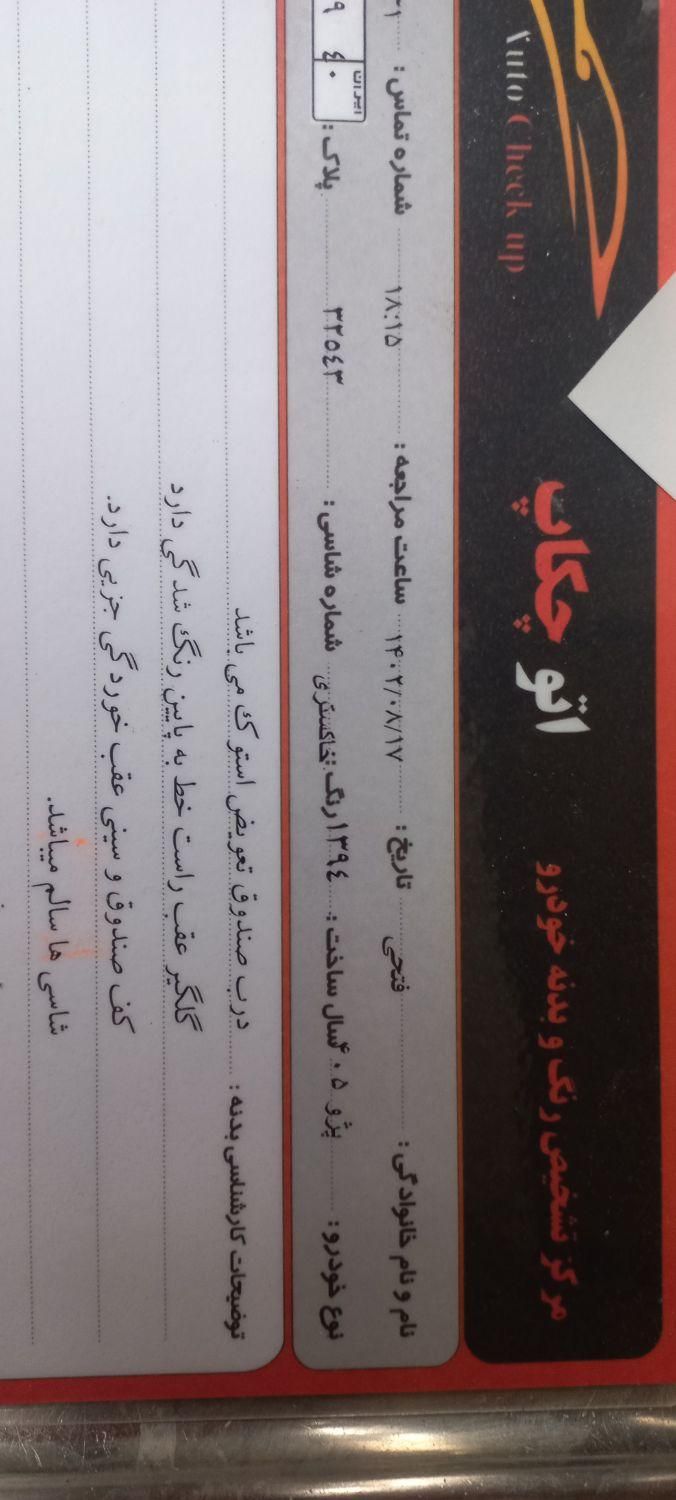 Auto Check up
مرکز تشخیص رنگ و بدنه خودرو اتو چکاپ
نام و نام خانوادگی: فتحی تاریخ: ۱۴۰۲/۰۸/۱۷ ساعت مراجعه: ۱۸:۱۵ شماره تماس:
نوع خودرو: پژو ۴۰۵ سال ساخت: ۱۳۹۴ رنگ: خاکستری شماره شاسی: ۳۲۵۴۳ پلاک: ایران ۴۰
توضیحات کارشناسی بدنه: درب صندوق تعویض استوک می باشد
گلگیر عقب راست خط به پایین رنگ شدگی دارد
کف صندوق و سینی عقب خوردگی جزیی دارد.
شاسی ها سالم میباشد.